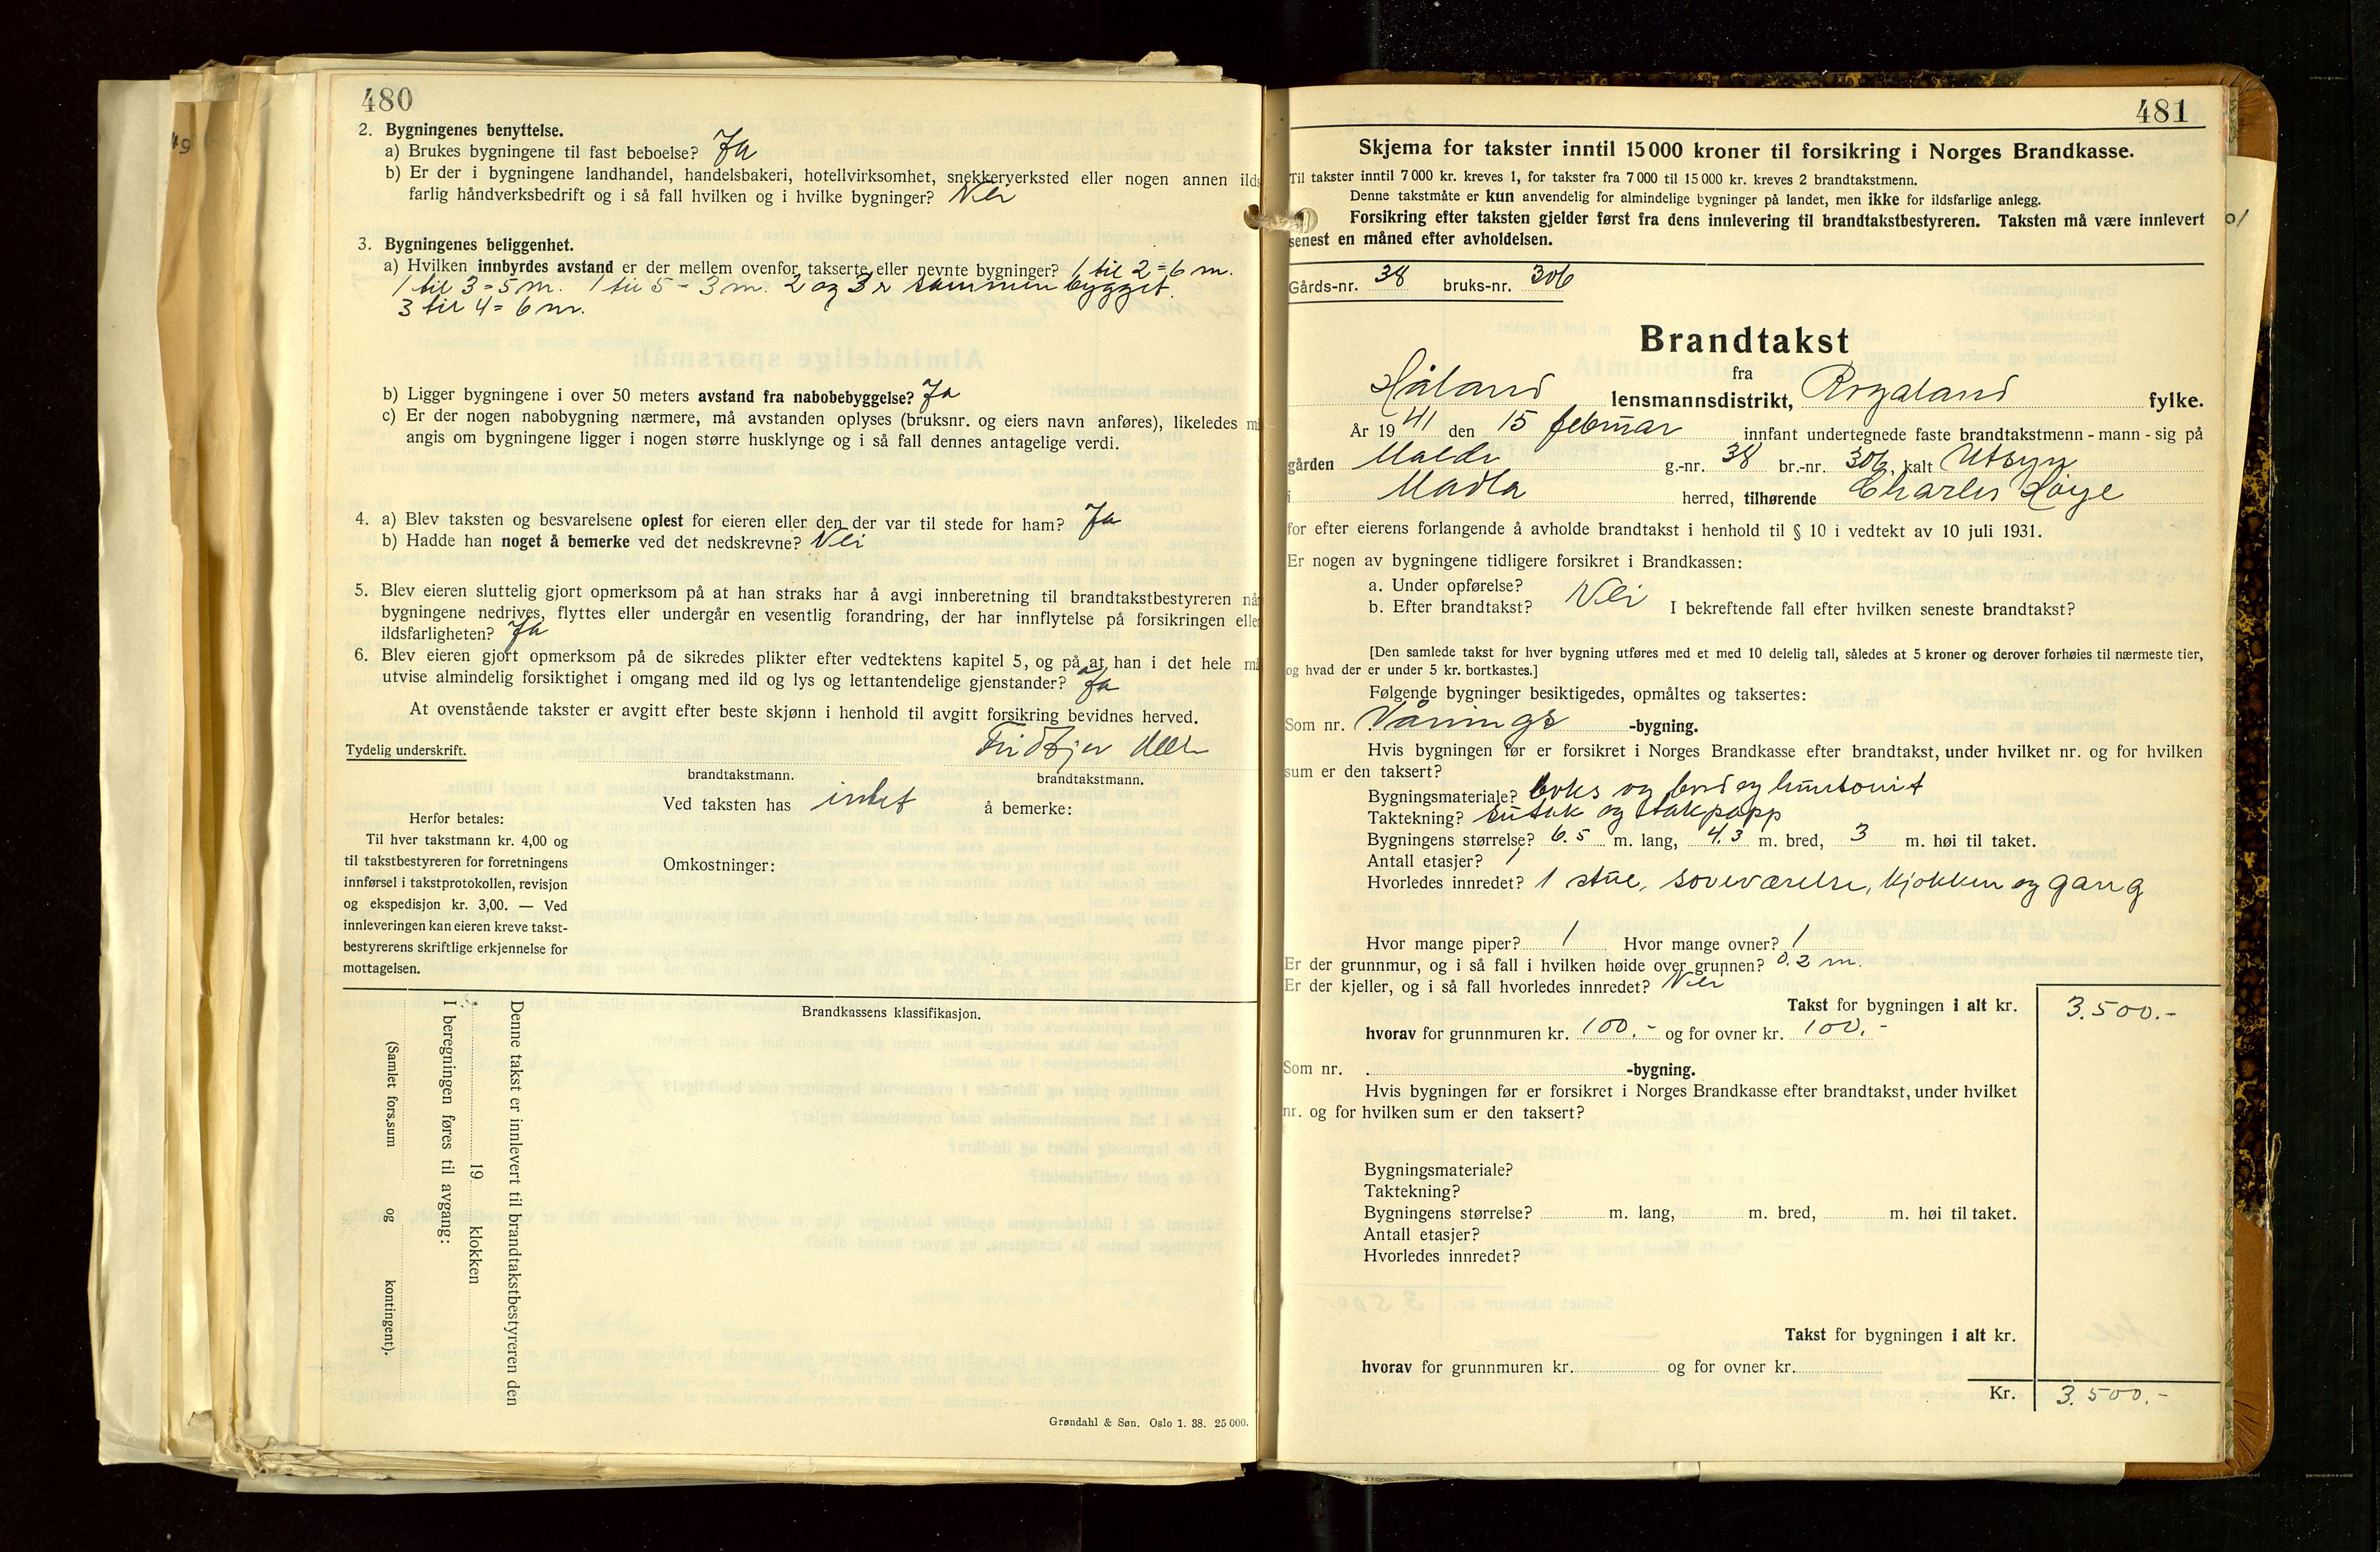 480
2. Bygningenes benyttelse.
a) Brukes bygningene til fast beboelse? Ja
b) Er der i bygningene landhandel, handelsbakeri, hotellvirksomhet, snekkerverksted eller nogen annen ilds
farlig håndverksbedrift og i så fall hvilken og i hvilke bygninger? Nei
3. Bygningenes beliggenhet.
a) Hvilken innbyrdes avstand er der mellem ovenfor takserte eller nevnte bygninger? 1 til 2 = 6 m.
1 til 3 = 5 m. 1 til 5 = 3 m. 2 og 3 er sammenbygget.
3 til 4 = 6 m.
b) Ligger bygningene i over 50 meters avstand fra nabobebyggelse? Ja
c) Er der nogen nabobygning nærmere, må avstanden oplyses (bruksnr. og eiers navn anføres), likeledes m
angis om bygningene ligger i nogen større husklynge og i så fall dennes antagelige verdi.
4. a) Blev taksten og besvarelsene oplest for eieren eller den der var til stede for ham? Ja
b) Hadde han noget å bemerke ved det nedskrevne? Nei
5. Blev eieren sluttelig gjort opmerksom på at han straks har å avgi innberetning til brandtakstbestyreren når
bygningene nedrives, flyttes eller undergår en vesentlig forandring, der har innflytelse på forsikringen elle
ildsfarligheten? Ja
6. Blev eieren gjort opmerksom på de sikredes plikter efter vedtektens kapitel 5, og på at han i det hele må
utvise almindelig forsiktighet i omgang med ild og lys og lettantendelige gjenstander? Ja
At ovenstående takster er avgitt efter beste skjønn i henhold til avgitt forsikring bevidnes herved.
Tydelig underskrift.
brandtakstmann. brandtakstmann.
Ved taksten has intet å bemerke:
Herfor betales:
Til hver takstmann kr. 4,00 og
til takstbestyreren for forretningens
innførsel i takstprotokollen, revisjon
og ekspedisjon kr. 3,00. — Ved
innleveringen kan eieren kreve takst-
bestyrerens skriftlige erkjennelse for
mottagelsen.
Omkostninger:
Denne takst er innlevert til brandtakstbestyreren den
19 klokken
I beregningen føres til avgang:
(Samlet fors.sum og kontingent).
Brandkassens klassifikasjon.
Grøndahl & Søn. Oslo 1. 38. 25 000.
481
Skjema for takster inntil 15 000 kroner til forsikring i Norges Brandkasse.
Til takster inntil 7 000 kr. kreves 1, for takster fra 7 000 til 15 000 kr. kreves 2 brandtakstmenn.
Denne takstmåte er kun anvendelig for almindelige bygninger på landet, men ikke for ildsfarlige anlegg.
Forsikring efter taksten gjelder først fra dens innlevering til brandtakstbestyreren. Taksten må være innlevert
senest en måned efter avholdelsen.
Gårds-nr. 38 bruks-nr. 306
Brandtakst
fra
Håland lensmannsdistrikt, Rogaland fylke.
År 1941 den 15 februar innfant undertegnede faste brandtakstmenn - mann - sig på
gården g.-nr. 38 br.-nr. 306, kalt Utsyn
i Madla herred, tilhørende Charles
for efter eierens forlangende å avholde brandtakst i henhold til § 10 i vedtekt av 10 juli 1931.
Er nogen av bygningene tidligere forsikret i Brandkassen:
a. Under opførelse?
b. Efter brandtakst? Nei I bekreftende fall efter hvilken seneste brandtakst?
[Den samlede takst for hver bygning utføres med et med 10 delelig tall, således at 5 kroner og derover forhøies til nærmeste tier,
og hvad der er under 5 kr. bortkastes.]
Følgende bygninger besiktigedes, opmåltes og taksertes:
Som nr. Vånings -bygning.
Hvis bygningen før er forsikret i Norges Brandkasse efter brandtakst, under hvilket nr. og for hvilken
sum er den taksert?
Bygningsmateriale? boks og bord og huntonit
Taktekning? sutak og takpapp
Bygningens størrelse? 6.5 m. lang, 4.3 m. bred, 3 m. høi til taket.
Antall etasjer? 1
Hvorledes innredet? 1 stue, soveværelse, kjøkken og gang
Hvor mange piper? 1 Hvor mange ovner? 1
Er der grunnmur, og i så fall i hvilken høide over grunnen? 0.2 m.
Er der kjeller, og i så fall hvorledes innredet? Nei
Takst for bygningen i alt kr. 3.500.-
hvorav for grunnmuren kr. 100.- og for ovner kr. 100.-
Som nr. -bygning.
Hvis bygningen før er forsikret i Norges Brandkasse efter brandtakst, under hvilket
nr. og for hvilken sum er den taksert?
Bygningsmateriale?
Taktekning?
Bygningens størrelse? m. lang, m. bred, m. høi til taket.
Antall etasjer?
Hvorledes innredet?
Takst for bygningen i alt kr.
hvorav for grunnmuren kr. og for ovner kr.
Kr. 3.500.-